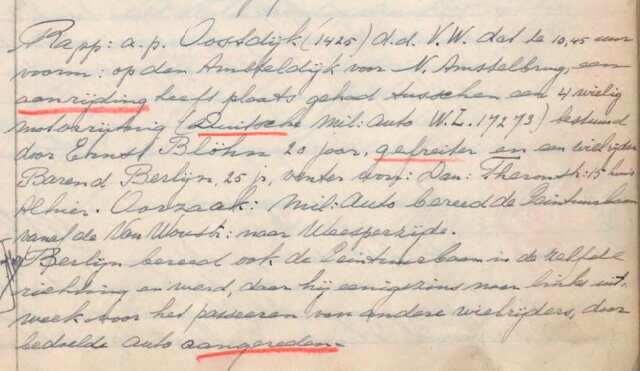 Rapp: a.p. Oostdijk (1425) d.d. V.W. dat te 10,45 uur
voorm: op den Amsteldijk voor N. Amstelbrug, een
aanrijding heeft plaats gehad tusschen een 4 wielig
motorrijtuig (Duitsche Mil: Auto W.L. 17273) bestuurd
door Ernst Blöhn 20 jaar, gefreiter en een wielrijder
Barend Berlijn, 25 j, venter won: Dan: Theronstr: 15 huis
Alhier. Oorzaak: Mil: Auto bereed de Ceintuurbaan
vanaf de Van Woustr: naar Weesperzijde.
Berlijn bereed ook de Ceintuurbaan in de zelfde
richting en werd, daar hij eenigszins naar links uit-
week voor het passeeren van andere wielrijders, door
bedoelde auto aangereden.